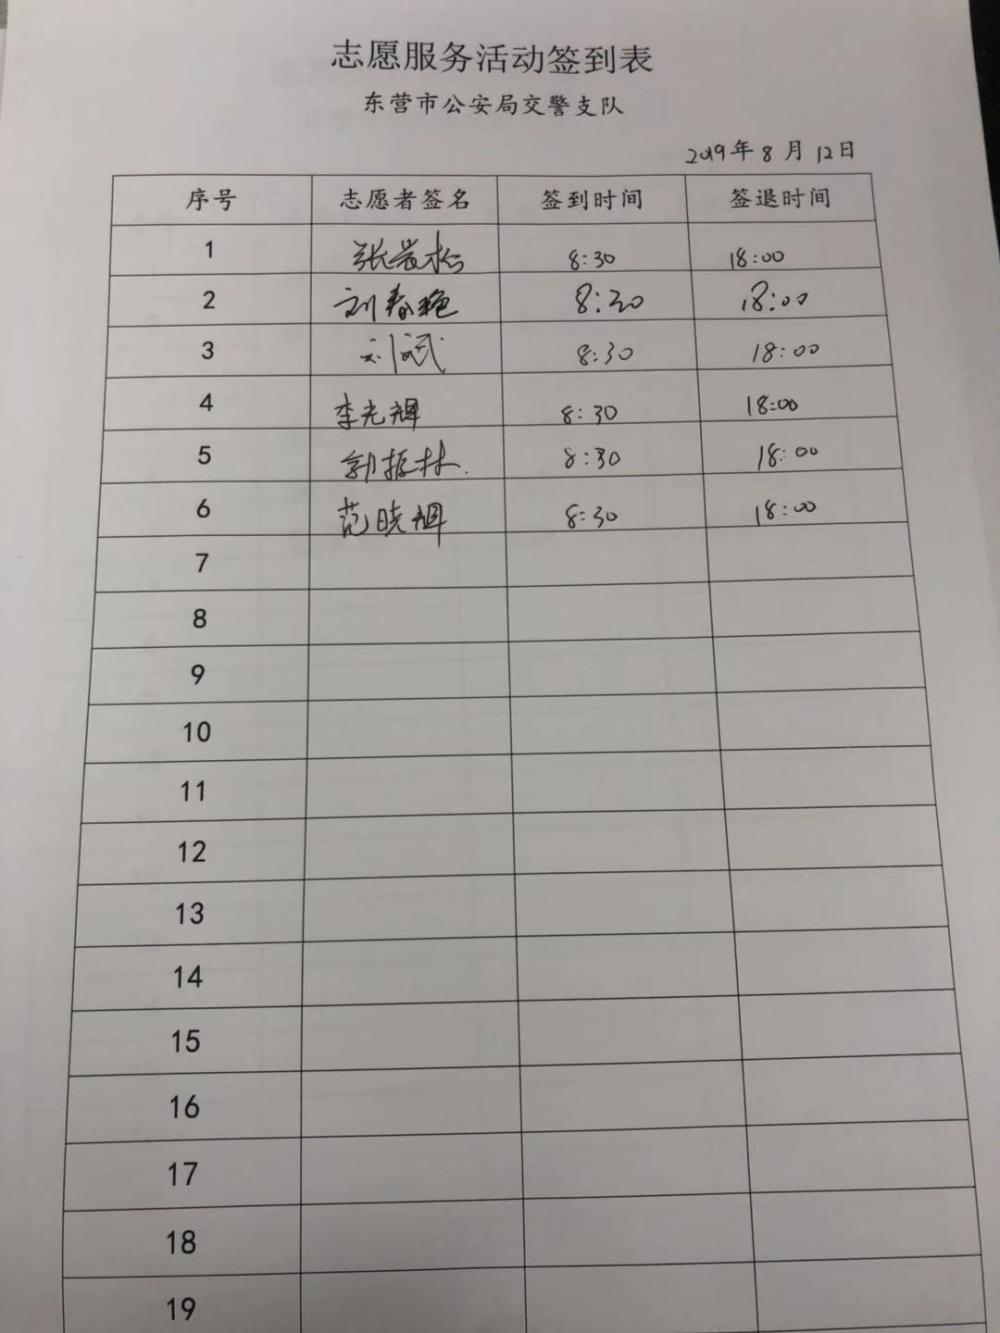 志愿服务活动签到表
东营市公安局交警支队
2019年8月12日
序号 志愿者签名 签到时间 签退时间
1 张岩松 8:30 18:00
2 刘春艳 8:30 18:00
3 刘斌 8:30 18:00
4 李光辉 8:30 18:00
5 林 8:30 18:00
6 范晓辉 8:30 18:00
7
8
9
10
11
12
13
14
15
16
17
18
19